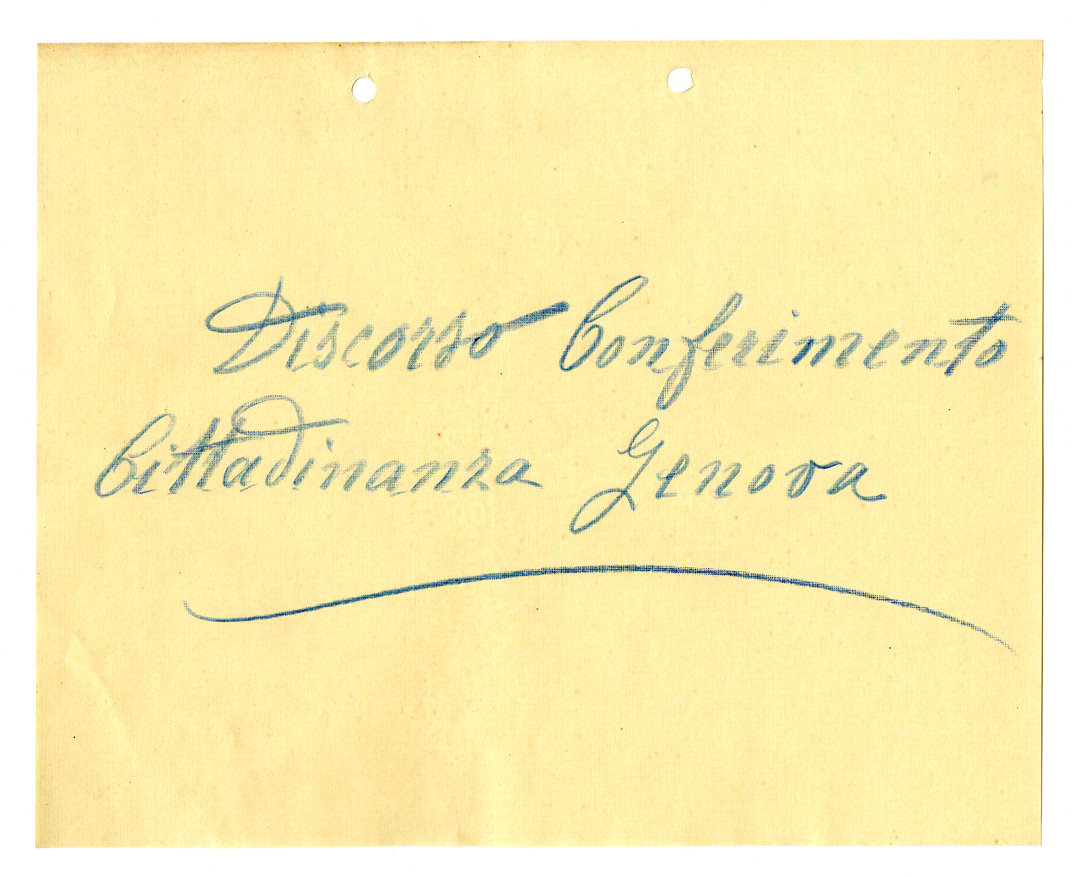 Discorso Conferimento
Cittadinanza Genova